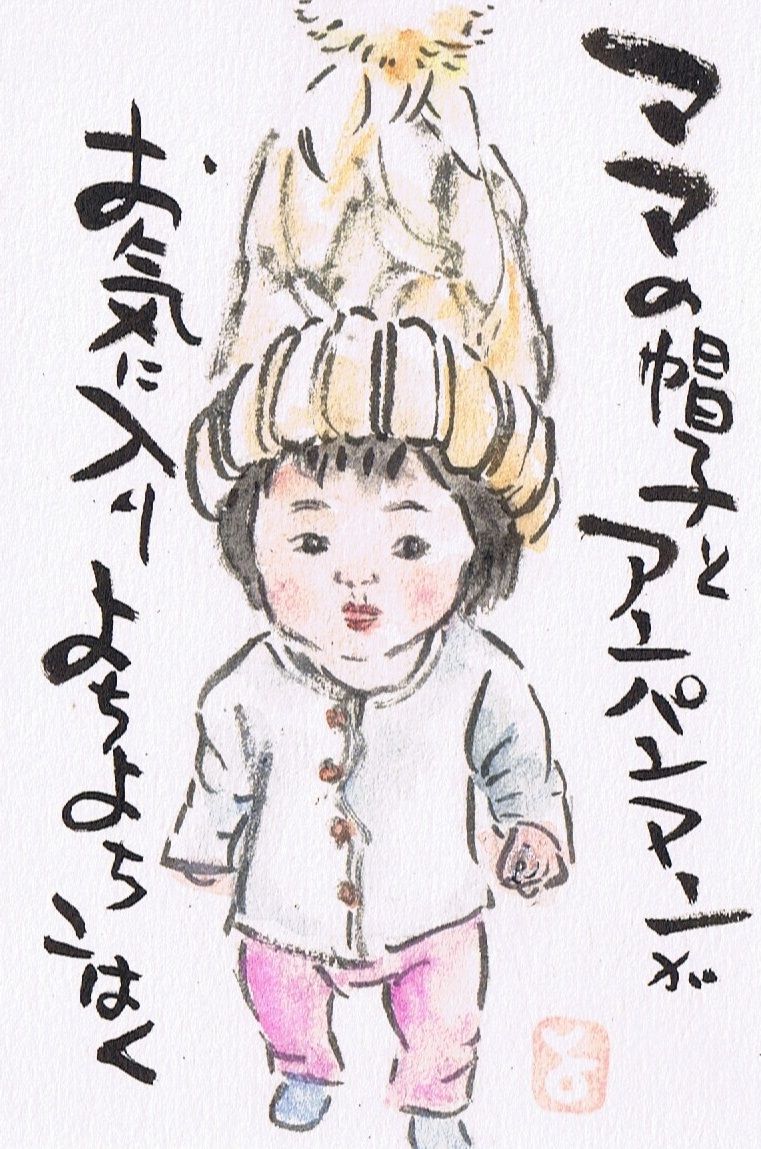 ママの帽子とアンパンマンが
お気に入りよちよちこはく
とよ